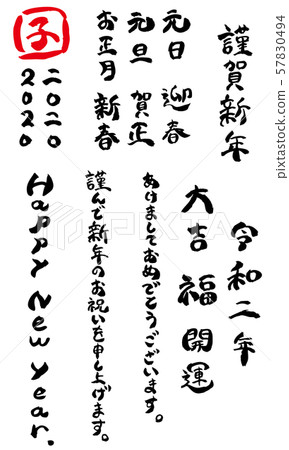 謹賀新年
元日 迎春
元旦 賀正
お正月 新春
子
二〇二〇
2020
令和二年
大吉 福 開運
あけましておめでとうございます。
謹んで新年のお祝いを申し上げます。
Happy New Year.
57830494